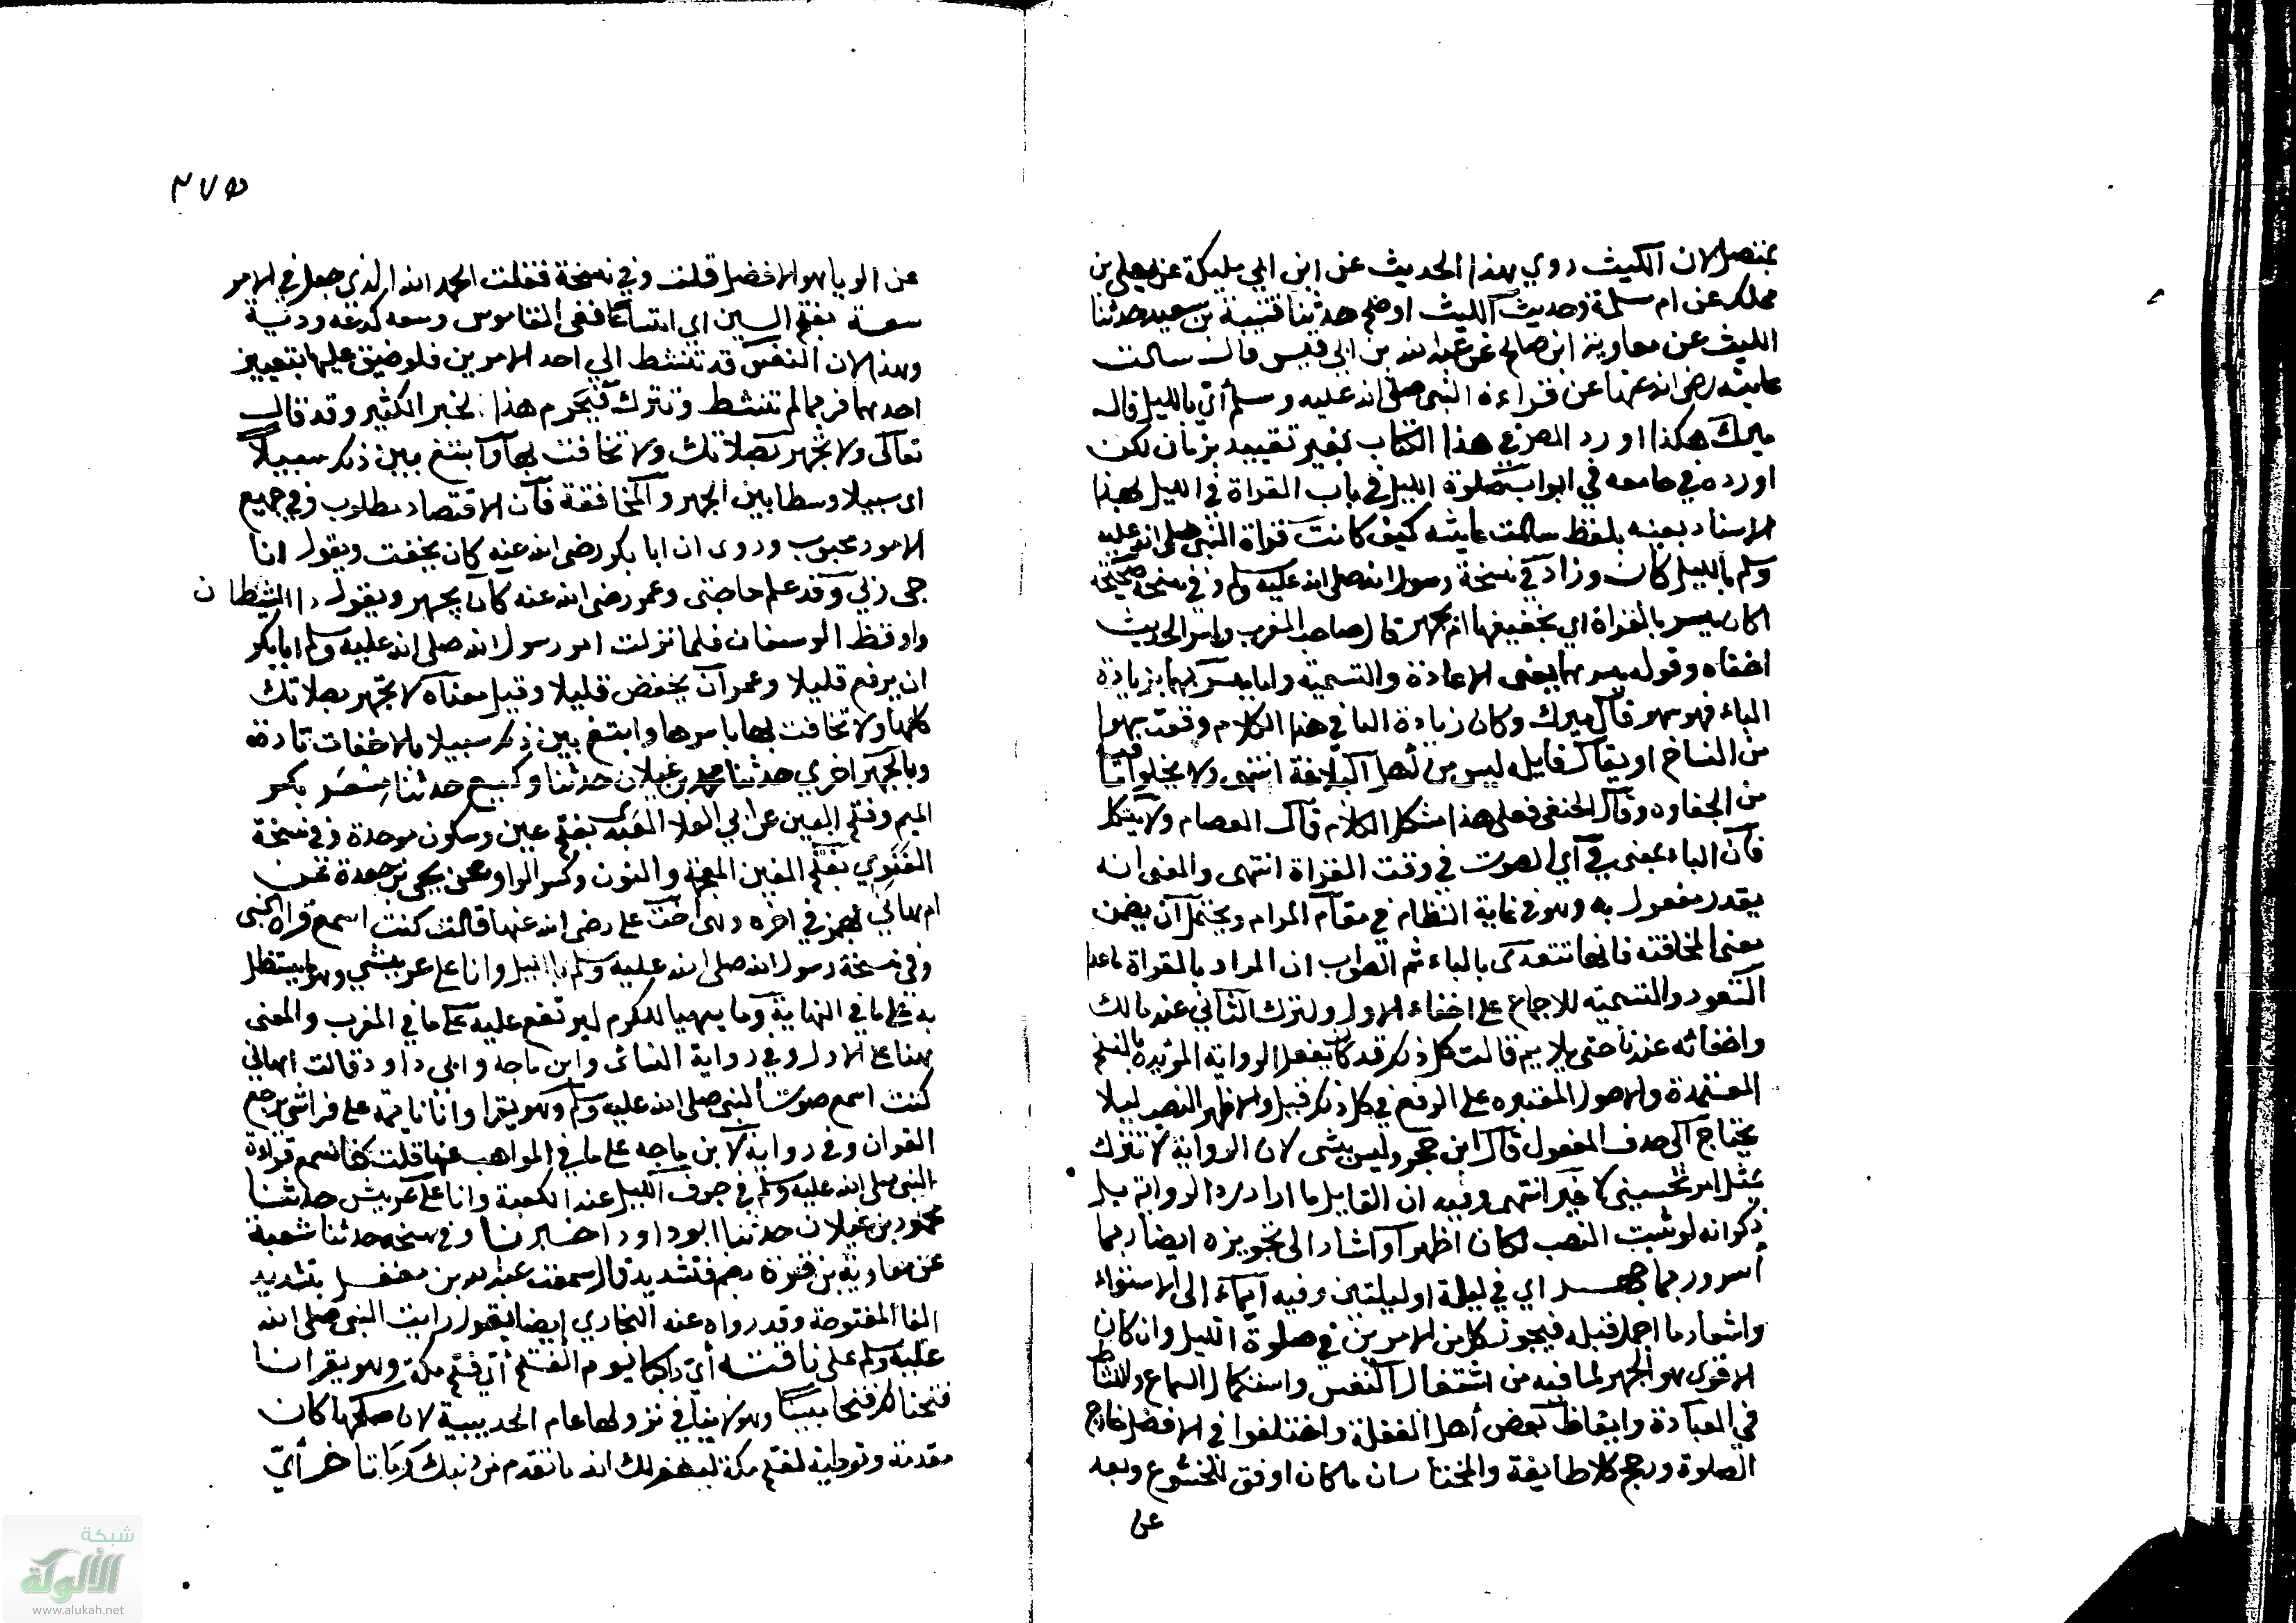 بمتصل لان الليث روي هذا الحديث عن ابن ابي مليكة عن يعلي بن
مملك عن ام سلمة وحديث الليث اوضح حدثنا قتيبة بن سعيد حدثنا
الليث عن معاوية ابن صالح عن عبد الله بن ابي قيس قال سالت
عايشه رضي الله عنها عن قراءة النبي صلى الله عليه وسلم أي بالليل قال
ميرك هكذا اورد المص في هذا الكتاب بغير تقييد بزمان لكن
اورده في جامعه في ابواب صلوة الليل في باب القراة في الليل بهذا
الاسناد بعينه بلفظ سالت عايشه كيف كانت قراة النبي صلى الله عليه
وسلم بالليل كان وزاد في نسخة رسول الله صلى الله عليه وسلم وفي نسخة صحيحة
اكان يسر بالقراة اي يخفيها ام يجهر قال صاحب المغرب واسر الحديث
اخفاه وقوله يسرهما يعني الاعاذة والتسمية واما يسر بهما بزيادة
الباء فهو سهو قال ميرك وكان زيادة البا في هذا الكلام وقعت سهوا
من النساخ او يقال قايله ليس من أهل البلاغة انتهى ولا يخلوا ما فيه
من الجفاوه وقال الحنفي فعلى هذا مشكل الكلام قال العصام ولا يشكل
فان الباء بمعنى في أي الصوت في وقت القراة انتهى والمعنى انه
يقدر مفعول به وهو في غاية النظام في مقام المرام ويحتمل أن يضمن
معنى المخافتة فانها تتعدى بالباء ثم الصواب ان المراد بالقراة ماعدا
التعوذ والتسمية للاجماع على اخفاء الاول ولترك الثاني عند مالك
واخفائه عندنا حتى يلايم قالت كل ذلك قد كان يفعل الرواية المؤيده بالنسخ
المعتمدة والاصول المعتبره على الرفع في كل ذلك قبل والاظهر النصب ليلا
يحتاج الى حذف المفعول قال ابن حجر وليس بشى لان الرواية لا تترك
بمثل امر تحسيني لا غير انتهى وفيه ان القايل ما اراد رد الرواية بل
ذكر انه لو ثبت النصب لكان اظهر او اشار الى تجويزه ايضا ربما
أسر وربما جهر اي في ليلة او ليلتين وفيه ايماء الى الاستواء
واشعار ما اجمل قبله فيجوز كل من الامرين في صلوة الليل وان كان
الاقوى هو الجهر لما فيه من اشتغال النفس واستكمال السماع والنشاط
في العبادة وايقاظ بعض أهل الغفلة واختلفوا في الافضل خارج
الصلوة ورجح كلا طايفة والمختا سان ما كان اوفق للخشوع وبعد
عن
٢٧٥
عن الريا هو الافضل قلت وفي نسخة فقلت الحمد الله الذي جعل في الامر
سعة بفتح السين اي اتساعا ففي القاموس وسعه كدعه ودنية
وهذا لان النفس قد تنشط الي احد الامرين فلو ضيق عليها بتعيين
احدهما فربما لم تنشط وتترك فتحرم هذا الخير الكثير وقد قال
تعالى ولا تجهر بصلاتك ولا تخافت بها وابتغ بين ذلك سبيلا
اي سبيلا وسطا بين الجهر والمخافتة فان الاقتصاد مطلوب وفي جميع
الامور محبوب وروى ان ابا بكر رضى الله عنه كان يخفت ويقول انا
جي ربي وقد علم حاجتي وعمر رضى الله عنه كان يجهر ويقول الشيطان
واوقظ الوسنان فلما نزلت امر رسول الله صلى الله عليه وسلم ابا بكر
ان يرفع قليلا وعمر أن يخفض قليلا وقيل معناه لا تجهر بصلاتك
كلها ولا تخافت بها باسرها وابتغ بين ذلك سبيلا بالاخفات تارة
وبالجهر اخرى حدثنا محمد بن غيلان حدثنا وكيع حدثنا مِسْعَر بكسر
الميم وفتح العين عن ابي العلا العَبْدي بفتح عين وسكون موحدة وفي نسخة
الغَنَوِي بفتح الغين المعجمة والنون وكسر الواو عن يحيى بن جعدة عن
ام هاني بهمز في اخره وهي اخت علي رضى الله عنها قالت كنت اسمع قراة النبي
وفي نسخة رسول الله صلى الله عليه وسلم بالليل وانا على عريشي وهو ما يستظل
به على ما في النهاية وما يهيأ للكرم ليرتفع عليه على ما في المغرب والمعنى
هنا على الاول وفي رواية النسائى وابن ماجه وابي داود قالت امهاني
كنت اسمع صوت النبي صلى الله عليه وسلم وهو يقرا وانا نايمة على فراشي يرجع
القران وفى رواية لابن ماجه على ما في المواهب عنها قلت كنا نسمع قراءة
النبي صلى الله عليه وسلم في جوف الليل عند الكعبة وانا على عريش حدثنا
محمود بن غيلان حدثنا ابو داود اخبرنا وفي نسخه حدثنا شعبة
عن معاوية بن قرة بضم فتشديد قال سمعت عبد الله بن مغفل بتشديد
الفا المفتوحة وقد رواه عنه البخاري ايضا يقول رايت النبي صلى الله
عليه وسلم على ناقته أي راكبا يوم الفتح أي فتح مكة وهو يقرا انا
فتحنا لك فتحا مبينا وهو لا ينافي نزولها عام الحديبية لان صلحها كان
مقدمة وتوطية لفتح مكة ليغفر لك الله ما تقدم من ذنبك وما تاخر أي